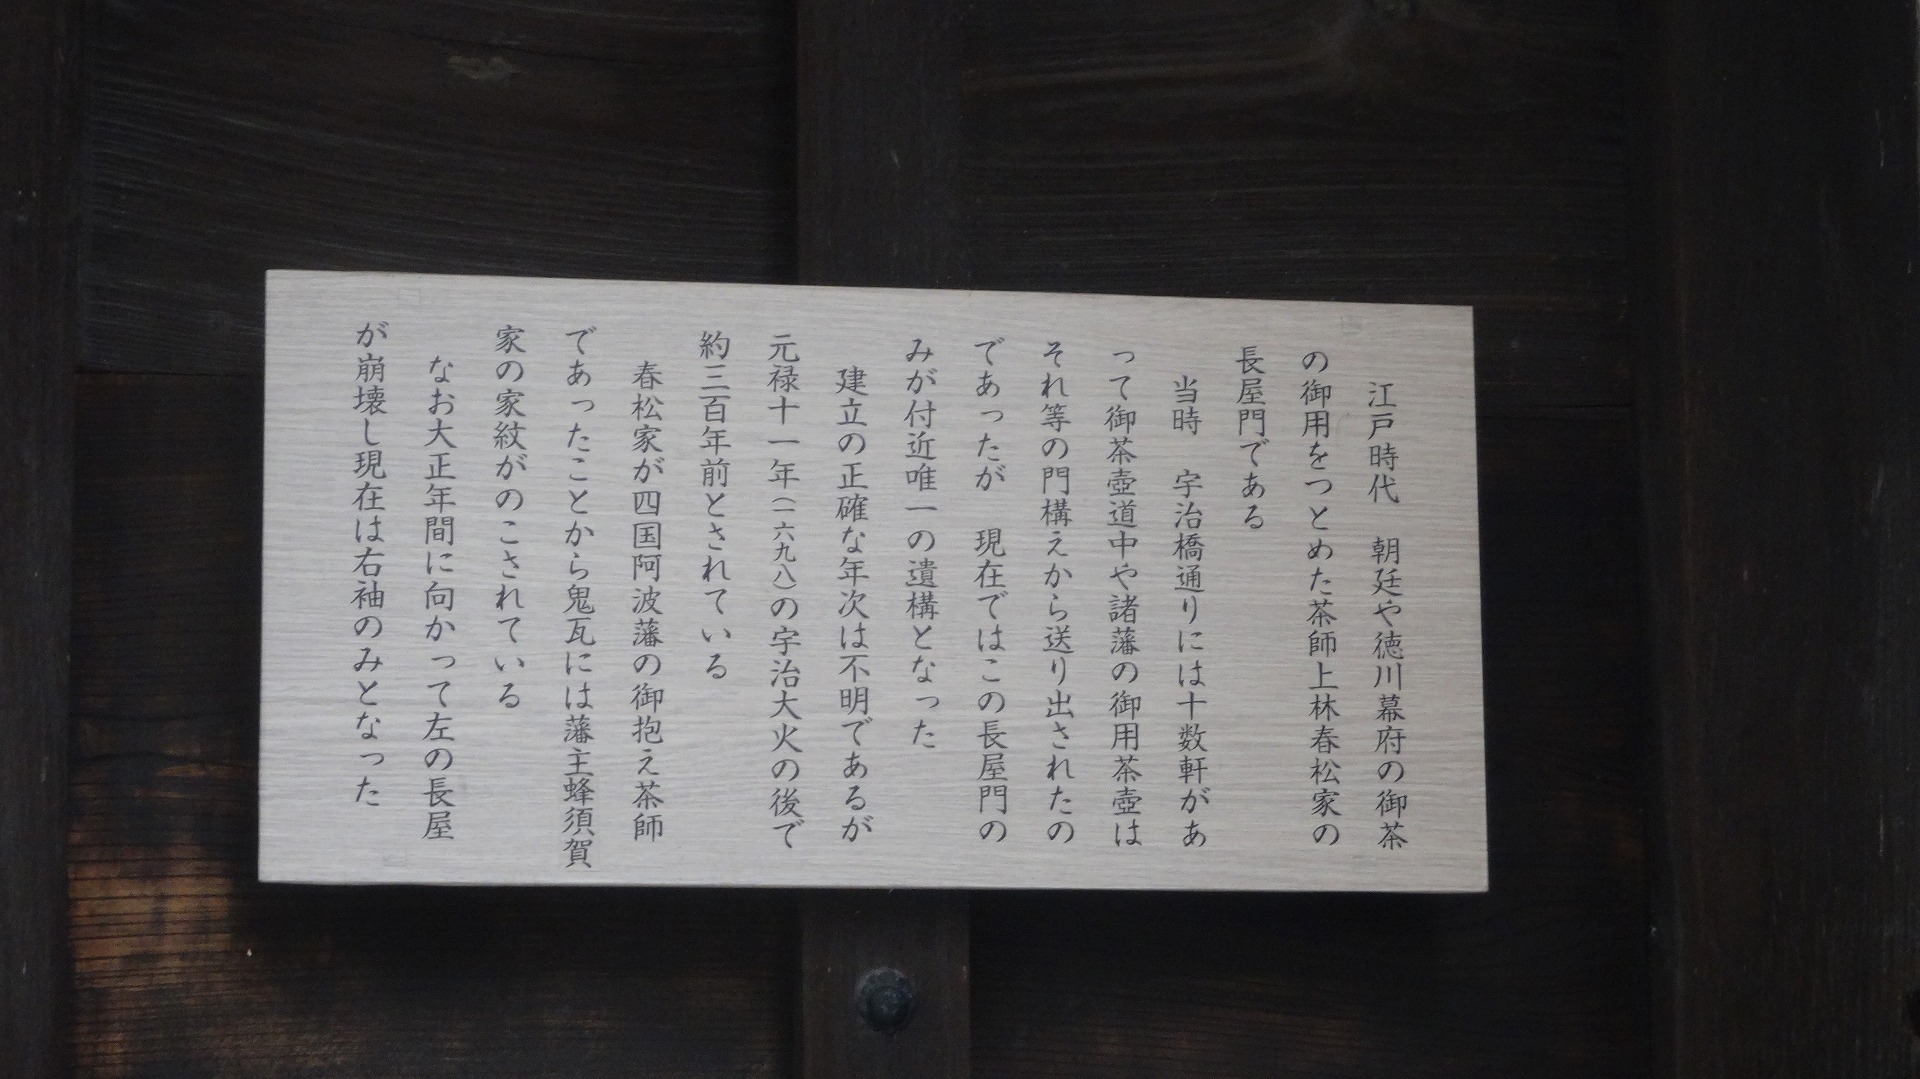 江戸時代　朝廷や徳川幕府の御茶
の御用をつとめた茶師上林春松家の
長屋門である
当時　宇治橋通りには十数軒があ
って御茶壺道中や諸藩の御用茶壺は
それ等の門構えから送り出されたの
であったが　現在ではこの長屋門の
みが付近唯一の遺構となった
建立の正確な年次は不明であるが
元禄十一年（一六九八）の宇治大火の後で
約三百年前とされている
春松家が四国阿波藩の御抱え茶師
であったことから鬼瓦には藩主蜂須賀
家の家紋がのこされている
なお大正年間に向かって左の長屋
が崩壊し現在は右袖のみとなった